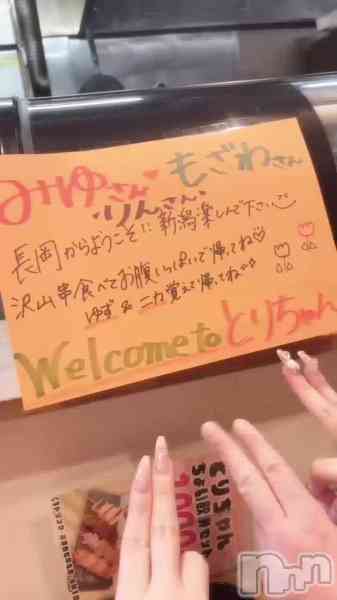 みゆさん♥ もざわさん
りんさん
長岡からようこそ!! 新潟楽しんで下さい
沢山串食べてお腹いっぱいで帰ってね♡
ゆず & ニカ覚えて帰ってね
Welcome to とりちゃん
とりちゃん
ちょい飲みセット
1000